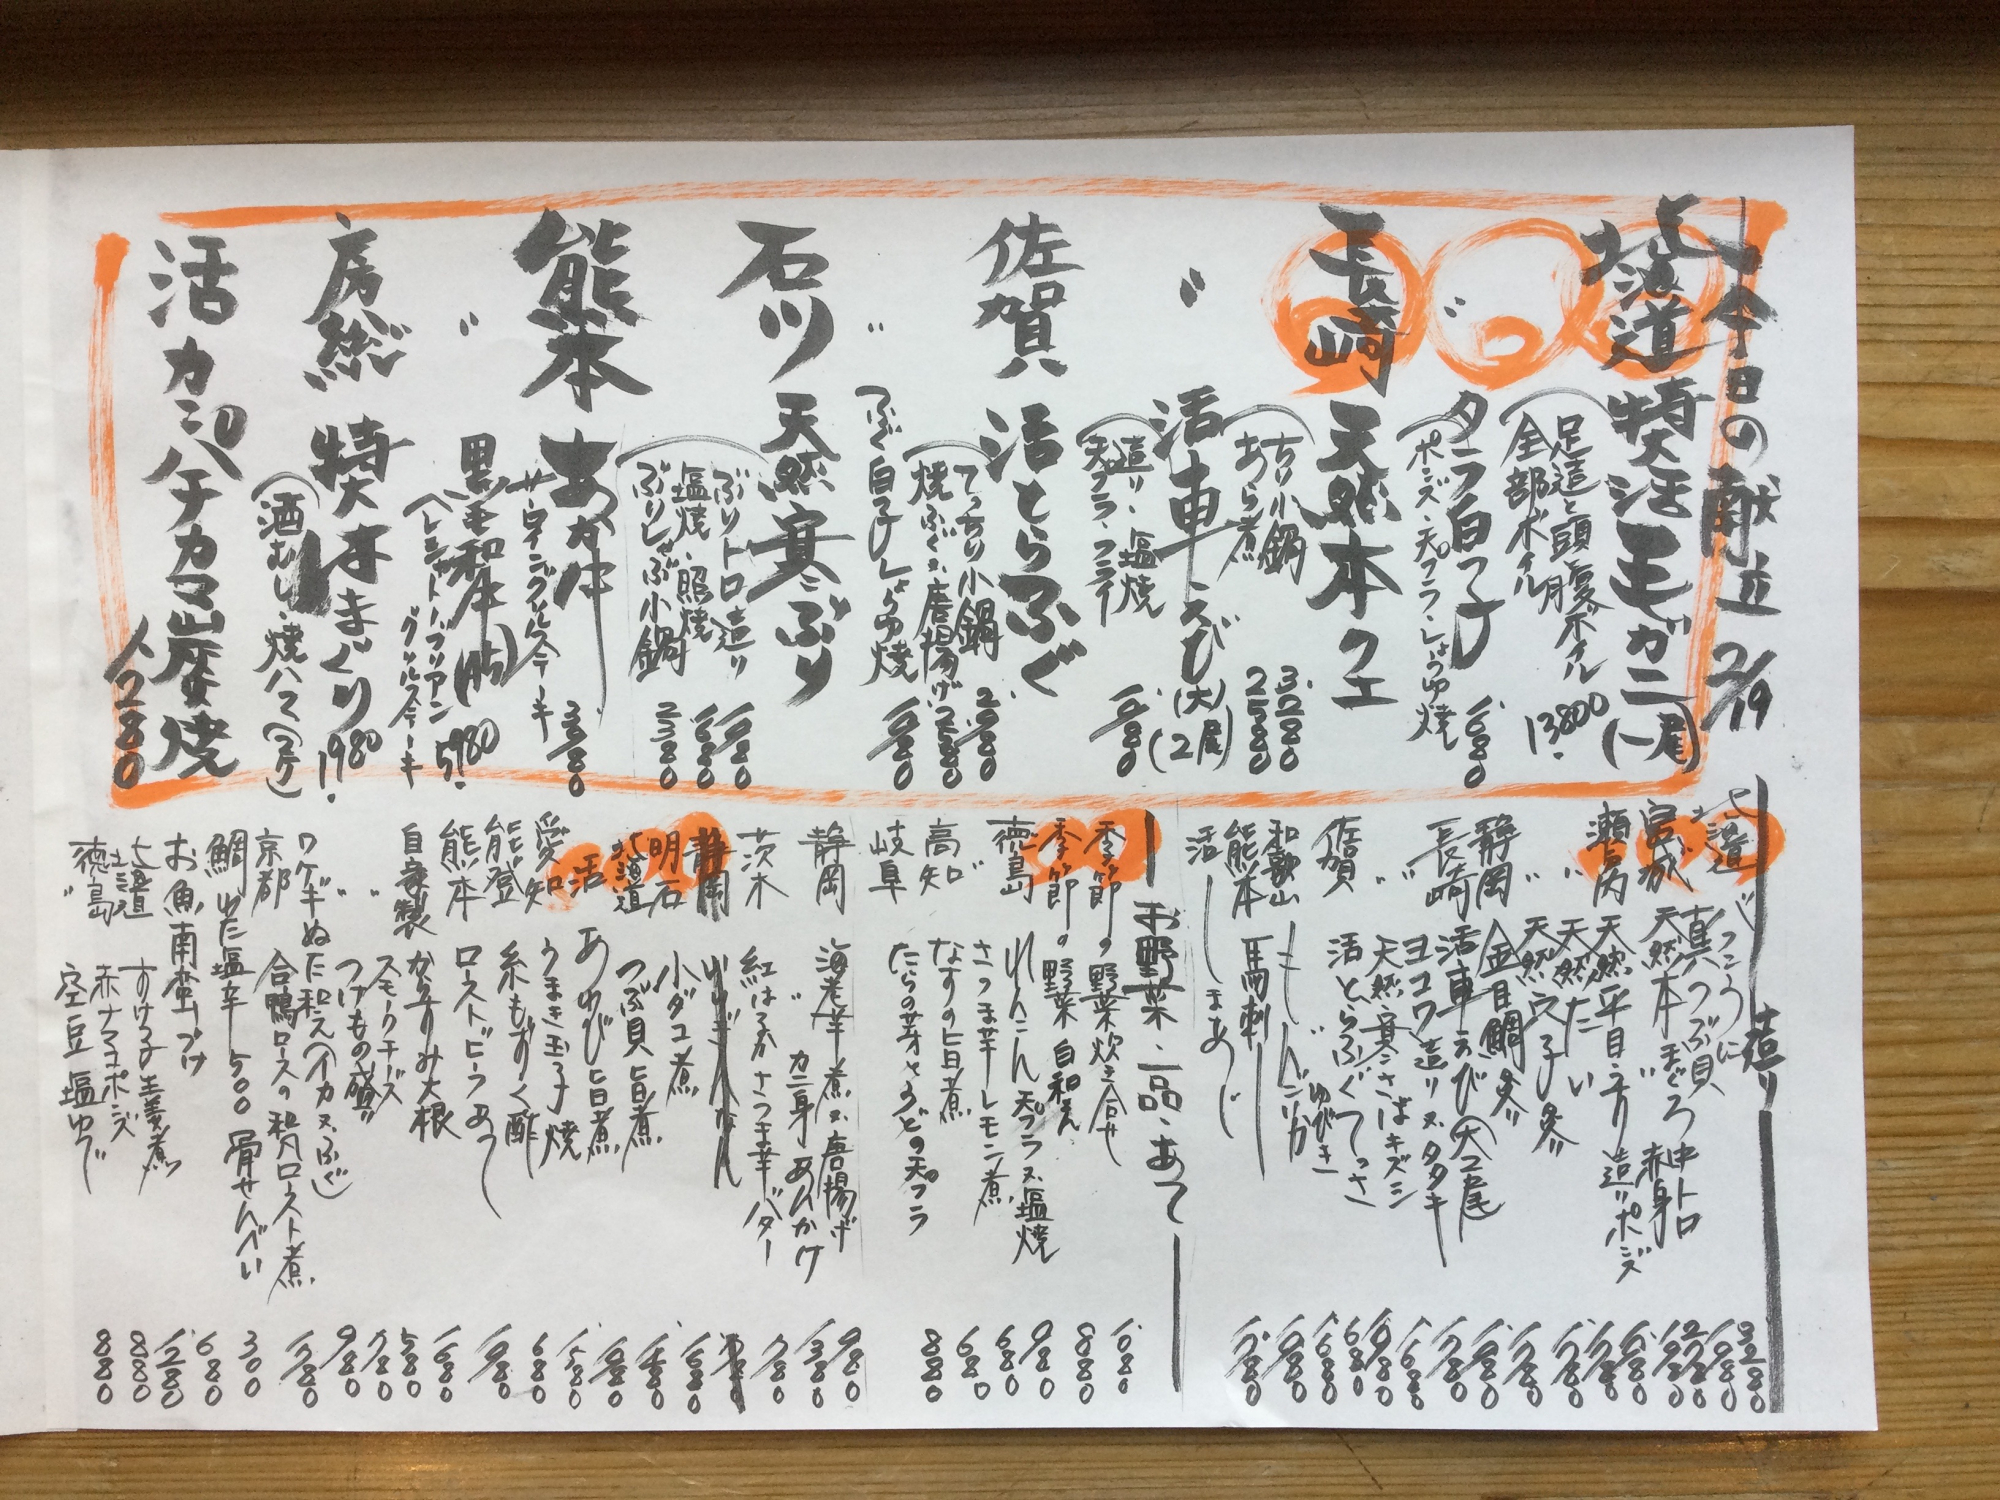 今日の献立 2/19
北海道 特大活毛ガニ(一尾)
足造と頭腹ボイル
全部ボイル 13800.
〃 タラ白子
ポンズ・天プラ・しょうゆ焼 1680
長崎 天然本クエ
ちり小鍋 3280
あら煮 2580
〃 活車えび(大)(2尾)
造り・塩焼
天プラ・フライ 1780
佐賀 活とらふぐ
てっちり小鍋 2980
焼ふぐ又唐揚げ 2280
〃 ふぐ白子しょうゆ焼 1980
石川 天然寒ぶり
ぶりトロ造り 1980
塩焼・照焼 1680
ぶりしゃぶ小鍋 2380
熊本 あか牛
サーロイングリルステーキ 3380
〃 黒毛和牛(A5)
(シャトーブリアン
グリルステーキ 5980.
房総 特大はまぐり
(酒むし・焼ハマ(2ケ) 1980.
活カンパチカマ岩塩焼 1280
造り
北海道 ばふんうに
〃 真つぶ貝
宮城 天然本まぐろ 中トロ
〃 赤身
瀬戸内 天然平目うす造りポンズ
〃 天然たい
〃 天然ウニ
静岡 金目鯛炙り
長崎 活車えび(大2尾)
〃 ヨコワ造り又タタキ
〃 天然寒さばキズシ
佐賀 活とらふぐてっさ
〃 ゆびき
和歌山 しビンチョウ
熊本 馬刺し
活しまあじ
お野菜・一品・あて
季節の野菜炊き合せ 1080
季節の野菜白和え 880
徳島 れんこん天プラ又塩焼 980
〃 さつま芋レモン煮 680
高知 なすの旨煮 680
岐阜 たらの芽とうどの天プラ 880
静岡 海老芋煮又唐揚げ 980
〃 カニ身あんかけ 1380
茨木 紅はるかさつま芋バター 780
明石 小ダコ煮
北海道 つぶ貝旨煮
活 あわび旨煮
愛知 うまき玉子焼
能登 糸もずく酢 680
熊本 ローストビーフあり
自家製 からすみ大根
〃 スモークチーズ
〃 つけもの盛り 980
ワケギぬた和え(イカ又ふぐ)
京都 合鴨ロースの和風ロースト煮
鯛わた塩辛 500 骨せんべい 300
お魚南蛮づけ 680
北海道 すけ子生姜煮
徳島 赤ナマコポンズ 880
〃 空豆塩ゆで 880